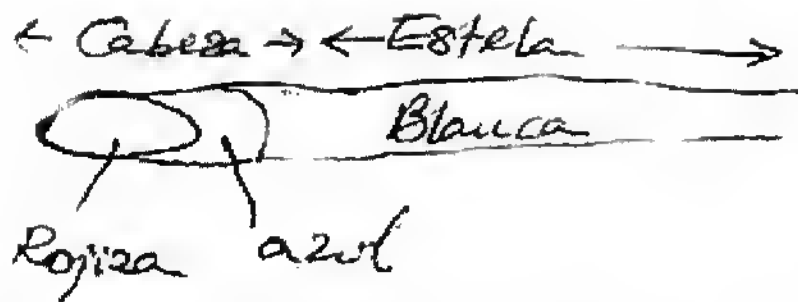 ← Cabeza → ← Estela →
Blanca
Rojiza azul